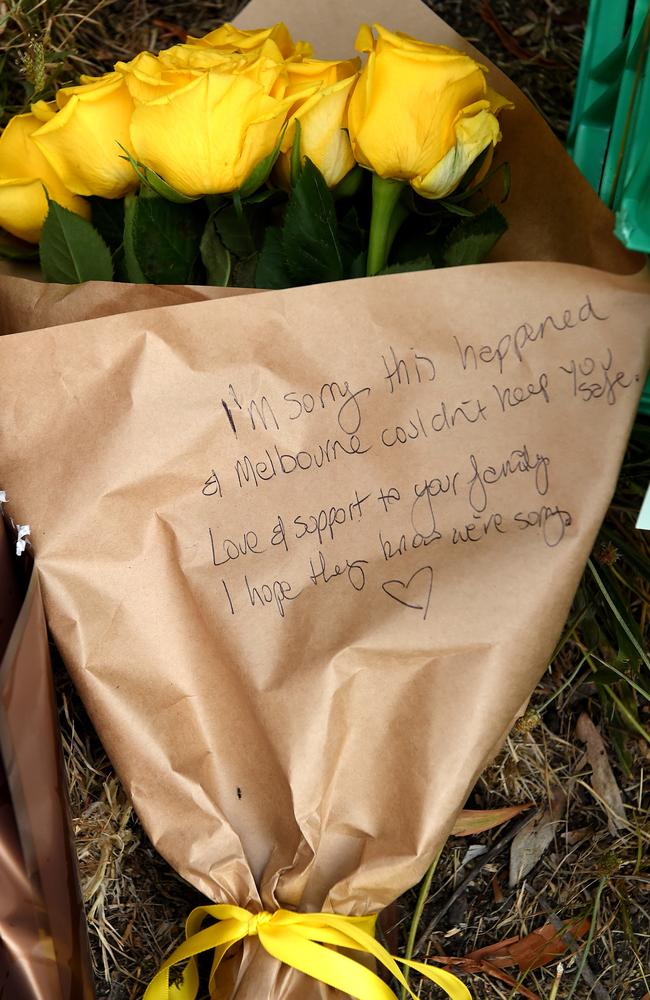 I'm sorry this happened
& Melbourne couldn't keep you safe.
Love & support to your family
I hope they know we're sorry